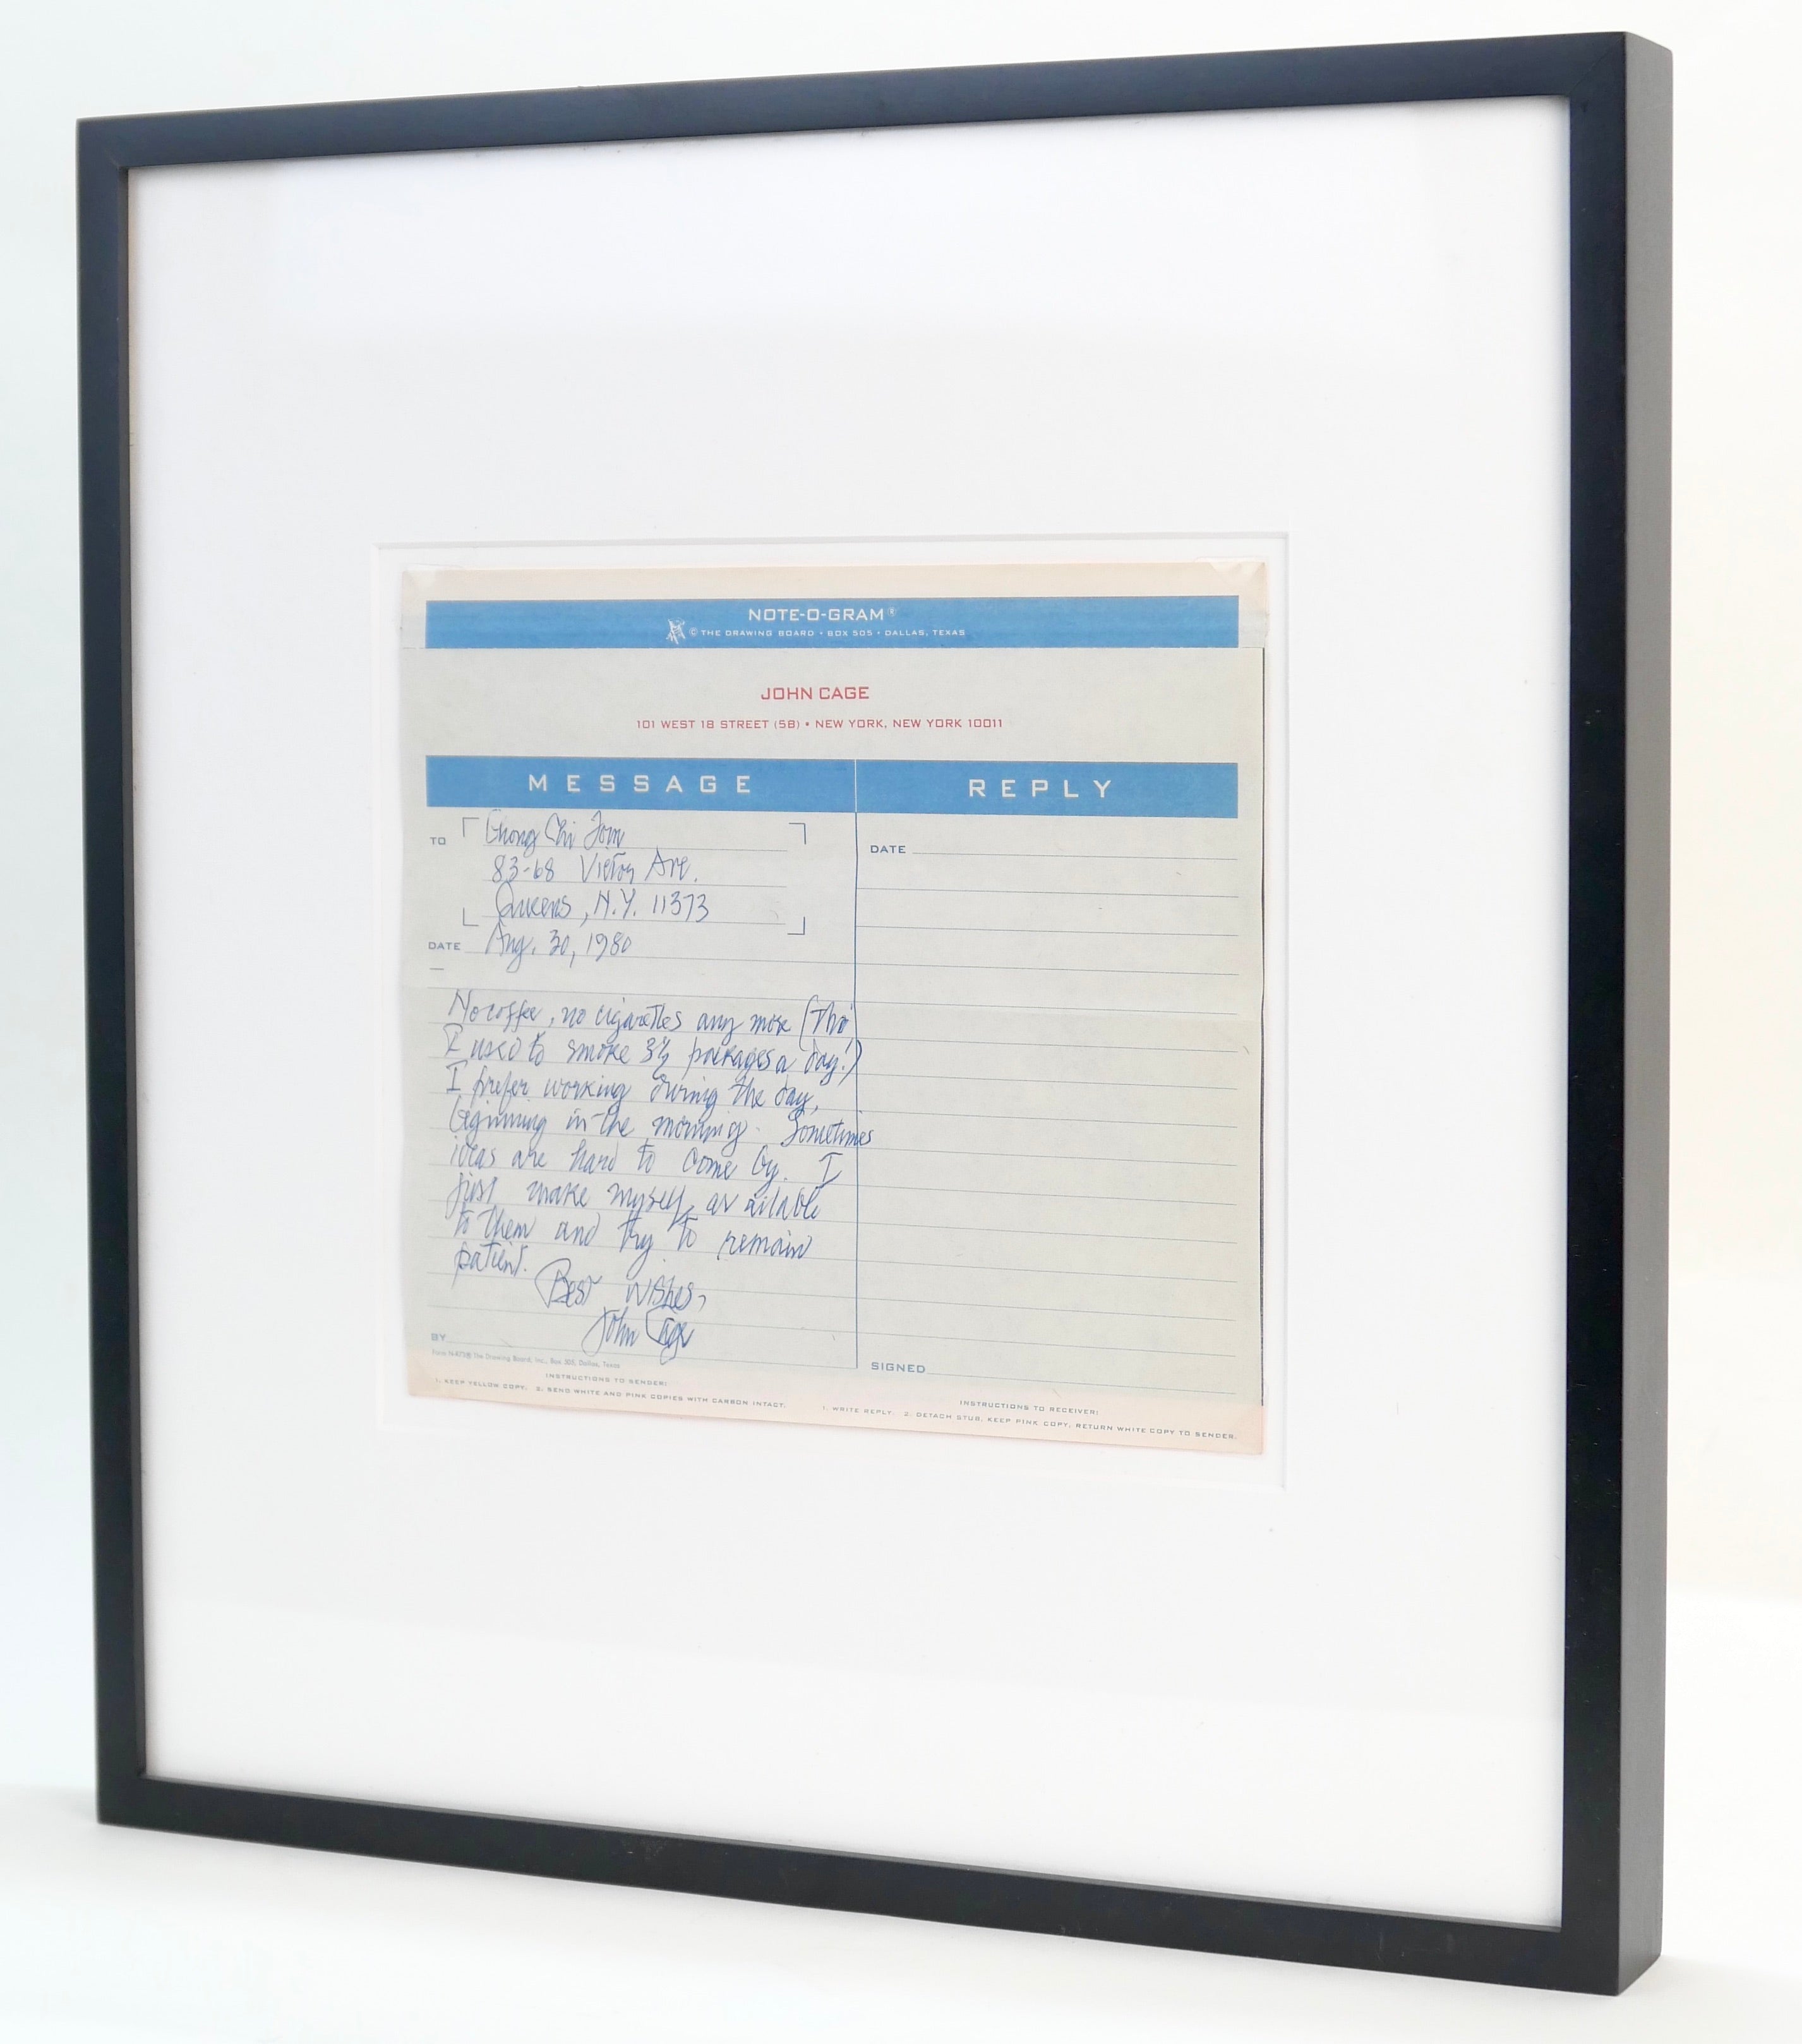 NOTE-O-GRAM®
© THE DRAWING BOARD • BOX 505 • DALLAS, TEXAS
JOHN CAGE
101 WEST 18 STREET (5B) • NEW YORK, NEW YORK 10011
MESSAGE
TO
Chi
83-68 Victor Ave.
Queens, N.Y. 11373
DATE Aug. 30, 1980
No coffee, no cigarettes any more (tho'
I used to smoke 3½ packages a day!)
I prefer working during the day,
beginning in the morning. Sometimes
ideas are hard to come by. I
just make myself available
to them and try to remain
patient.
Best wishes,
John Cage
BY
The Drawing Board, Inc., Box 505, Dallas, Texas
INSTRUCTIONS TO SENDER:
1. KEEP YELLOW COPY. 2. SEND WHITE AND PINK COPIES WITH CARBON INTACT.
REPLY
DATE
SIGNED
INSTRUCTIONS TO RECEIVER:
1. WRITE REPLY. 2. DETACH STUB, KEEP PINK COPY, RETURN WHITE COPY TO SENDER.